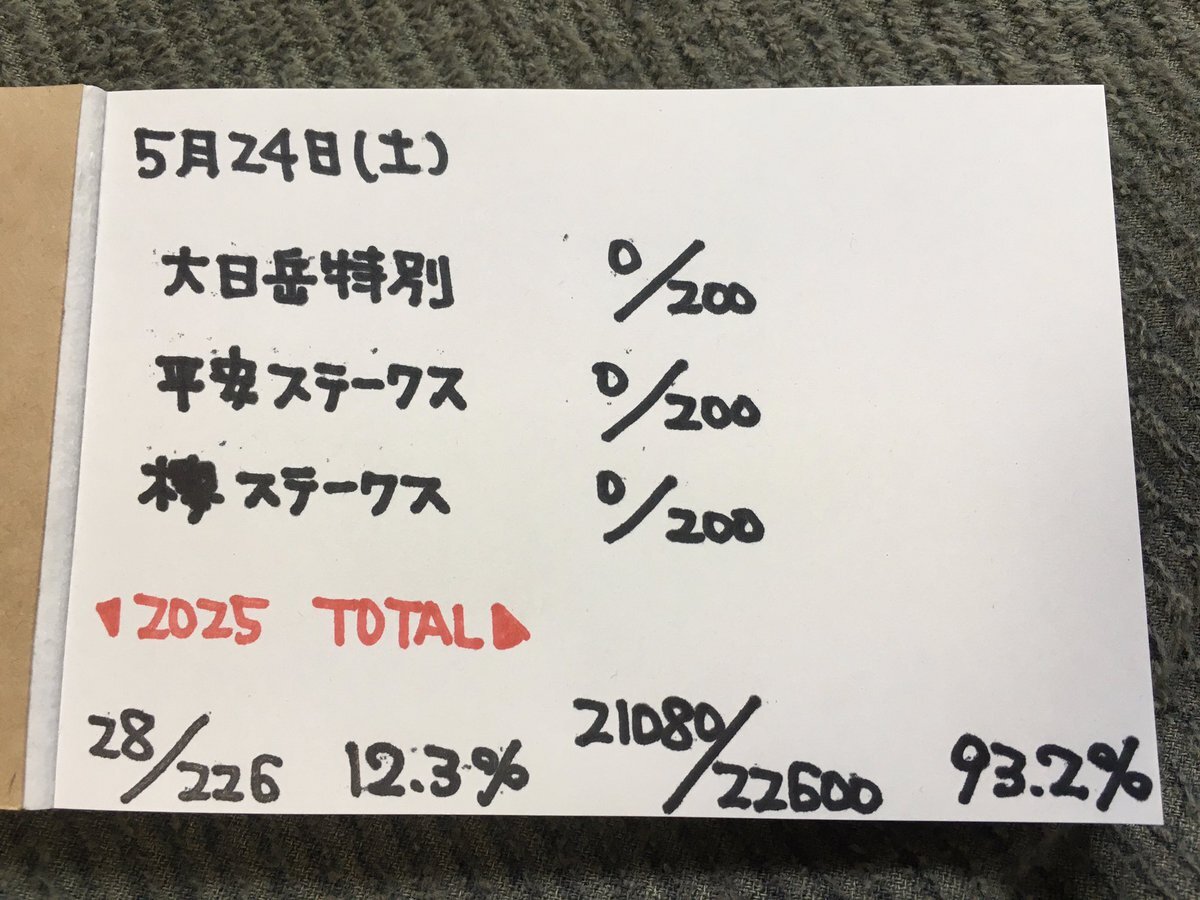 5月24日(土)
大日岳特別 0/200
平安ステークス 0/200
欅ステークス 0/200
◀2025 TOTAL▶
28/226 12.3% 21080/22600 93.2%